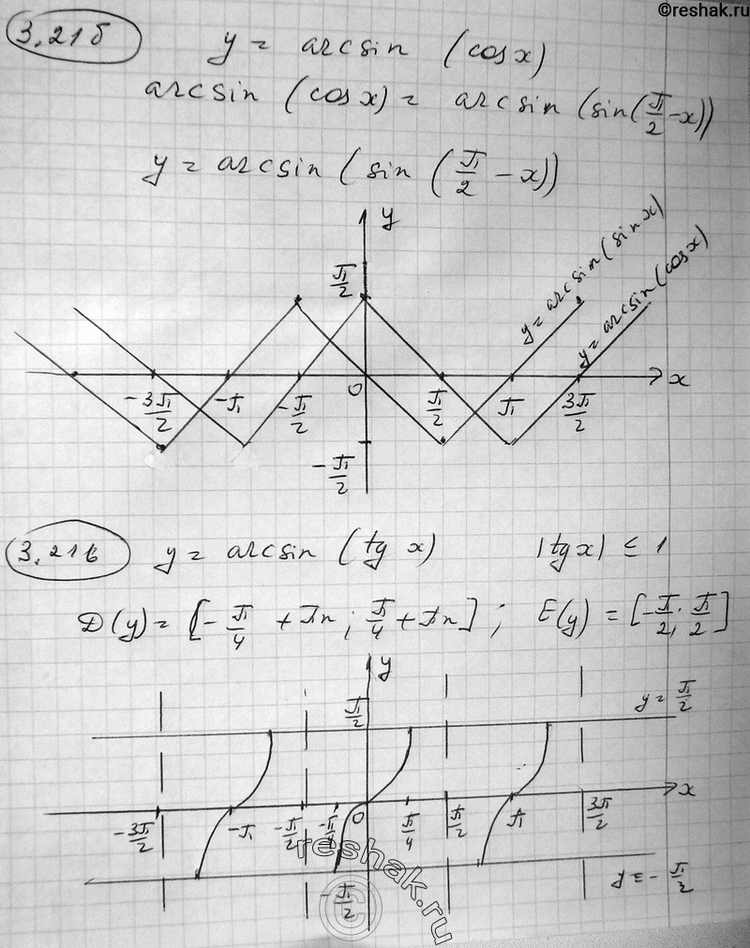 ©reshak.ru
3.21б y = arcsin (cosx)
arcsin (cosx) = arcsin (sin(π/2 -x))
y = arcsin (sin (π/2 - x))
y
π/2
y = arcsin(sinx)
y = arcsin(cosx)
-3π/2 -π -π/2 0 π/2 π 3π/2 x
-π/2
3.21в y = arcsin (tg x) |tgx| ≤ 1
D(y) = [-π/4 + πn ; π/4 + πn] ; E(y) = [-π/2; π/2]
y
π/2 y = π/2
-3π/2 -π -π/2 -π/4 0 π/4 π/2 π 3π/2 x
-π/2 y = -π/2
reshak.ru
©